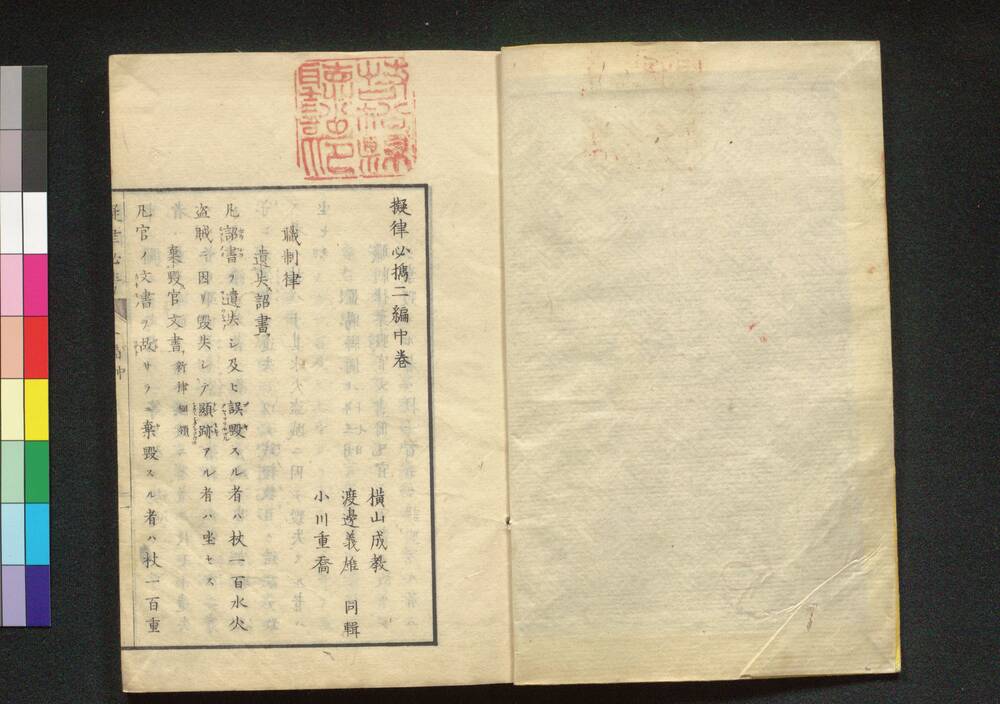 擬律必携二編中巻
橫山成教
渡邊義雄 同輯
小川重喬
職制律
遺失詔書
凡詔書ヲ遺失シ及ヒ誤毀スル者ハ杖一百水火
盗賊ニ因リ毀失シテ顯跡アル者ハ坐セス
棄毀官文書 新律綱領
凡官ノ文書ヲ故サラニ棄毀スル者ハ杖一百重